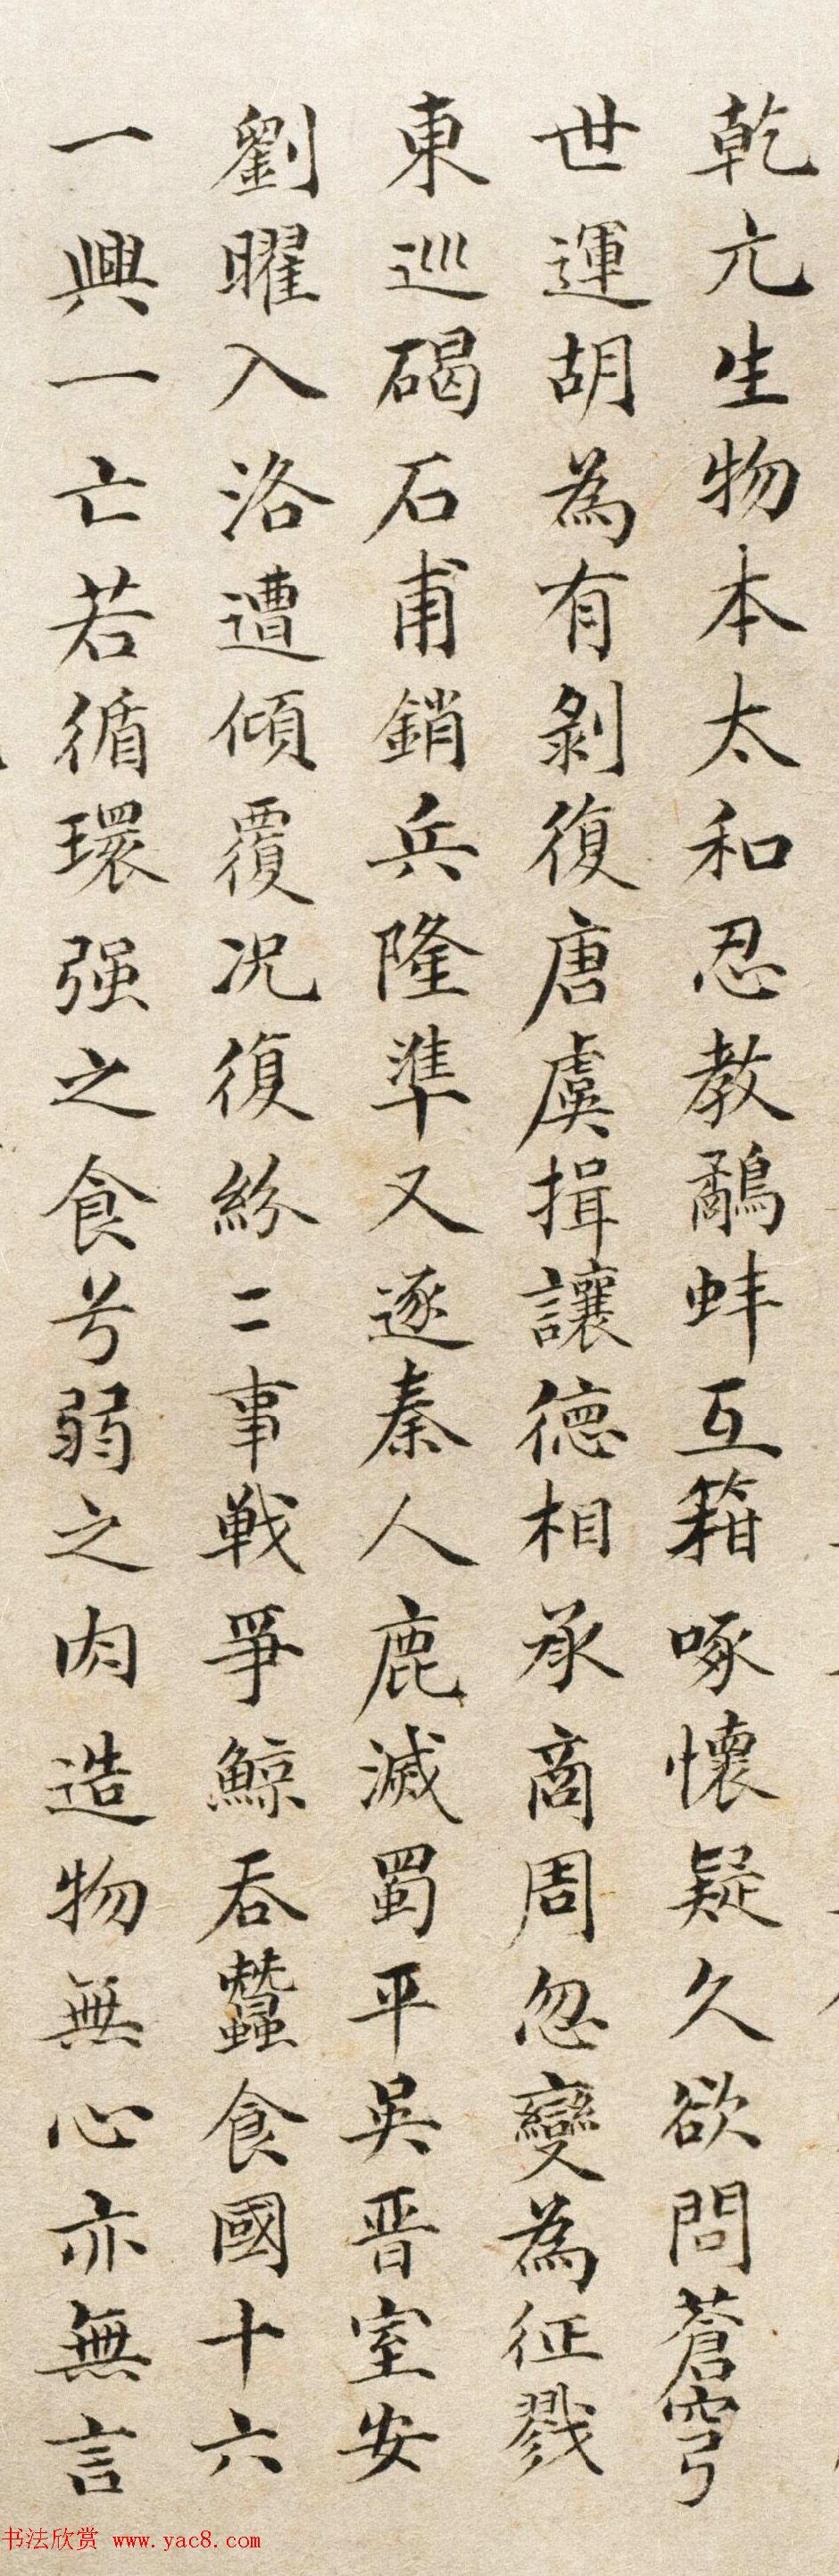 乾亢生物本太和忍教鷸蚌互箝啄懷疑久欲問蒼穹
世運胡為有剝復唐虞揖讓德相承商周忽變為征戮
東巡碣石甫銷兵隆準又逐秦人鹿滅蜀平吳晋室安
劉曜入洛遭傾覆况復紛二事戦爭鯨吞蠶食國十六
一興一亡若循環强之食兮弱之肉造物無心亦無言
书法欣赏 www.yac8.com